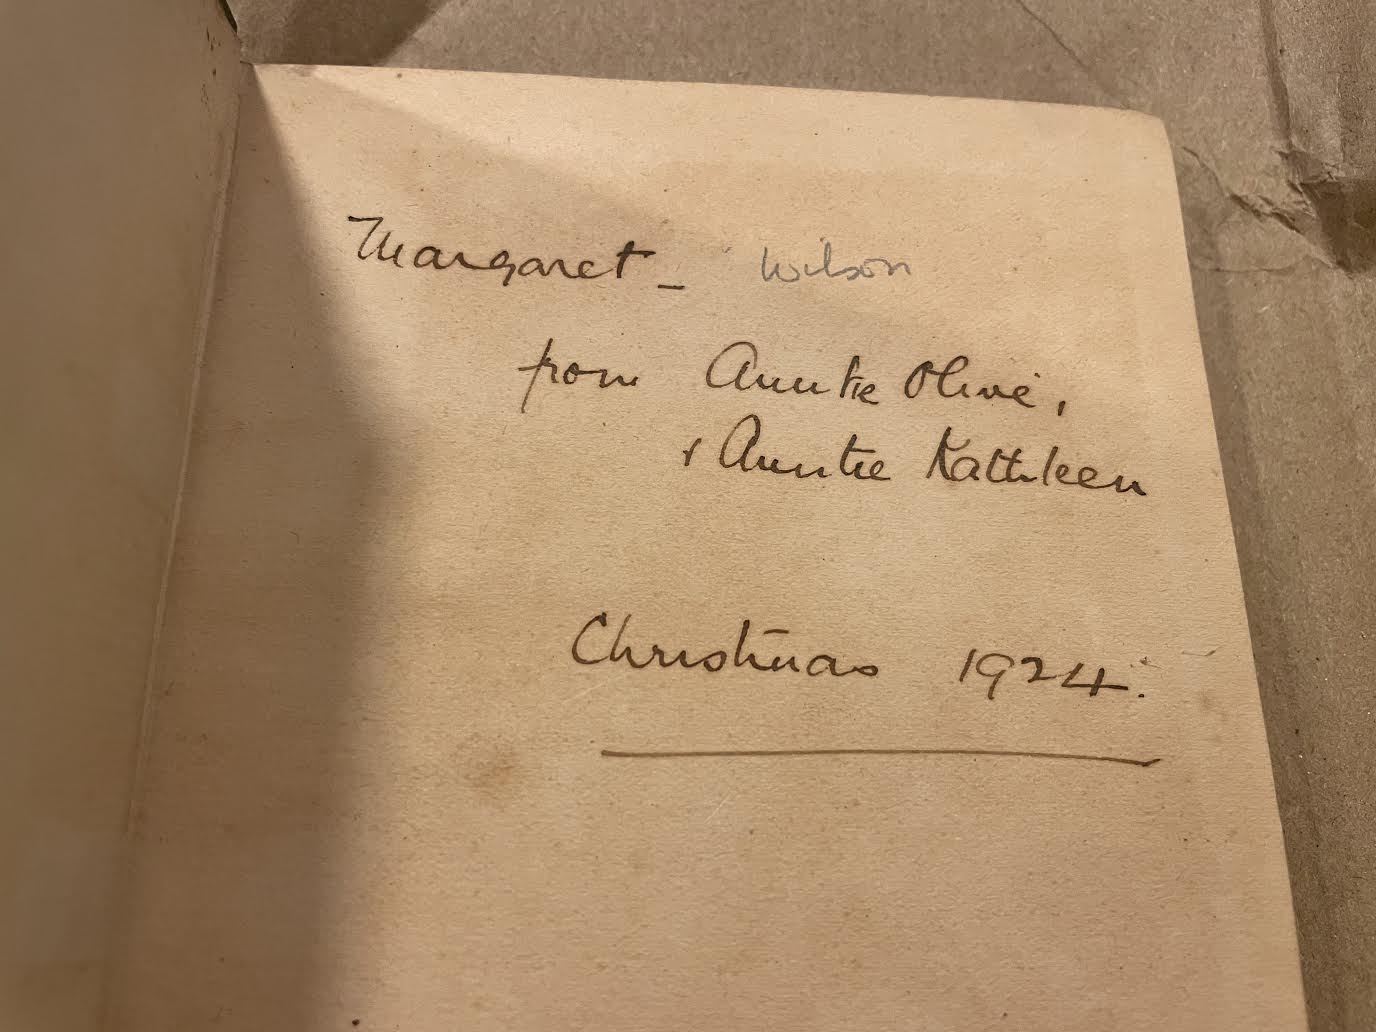 Margaret - Wilson
from Auntie Olive,
& Auntie Kathleen
Christmas 1924.